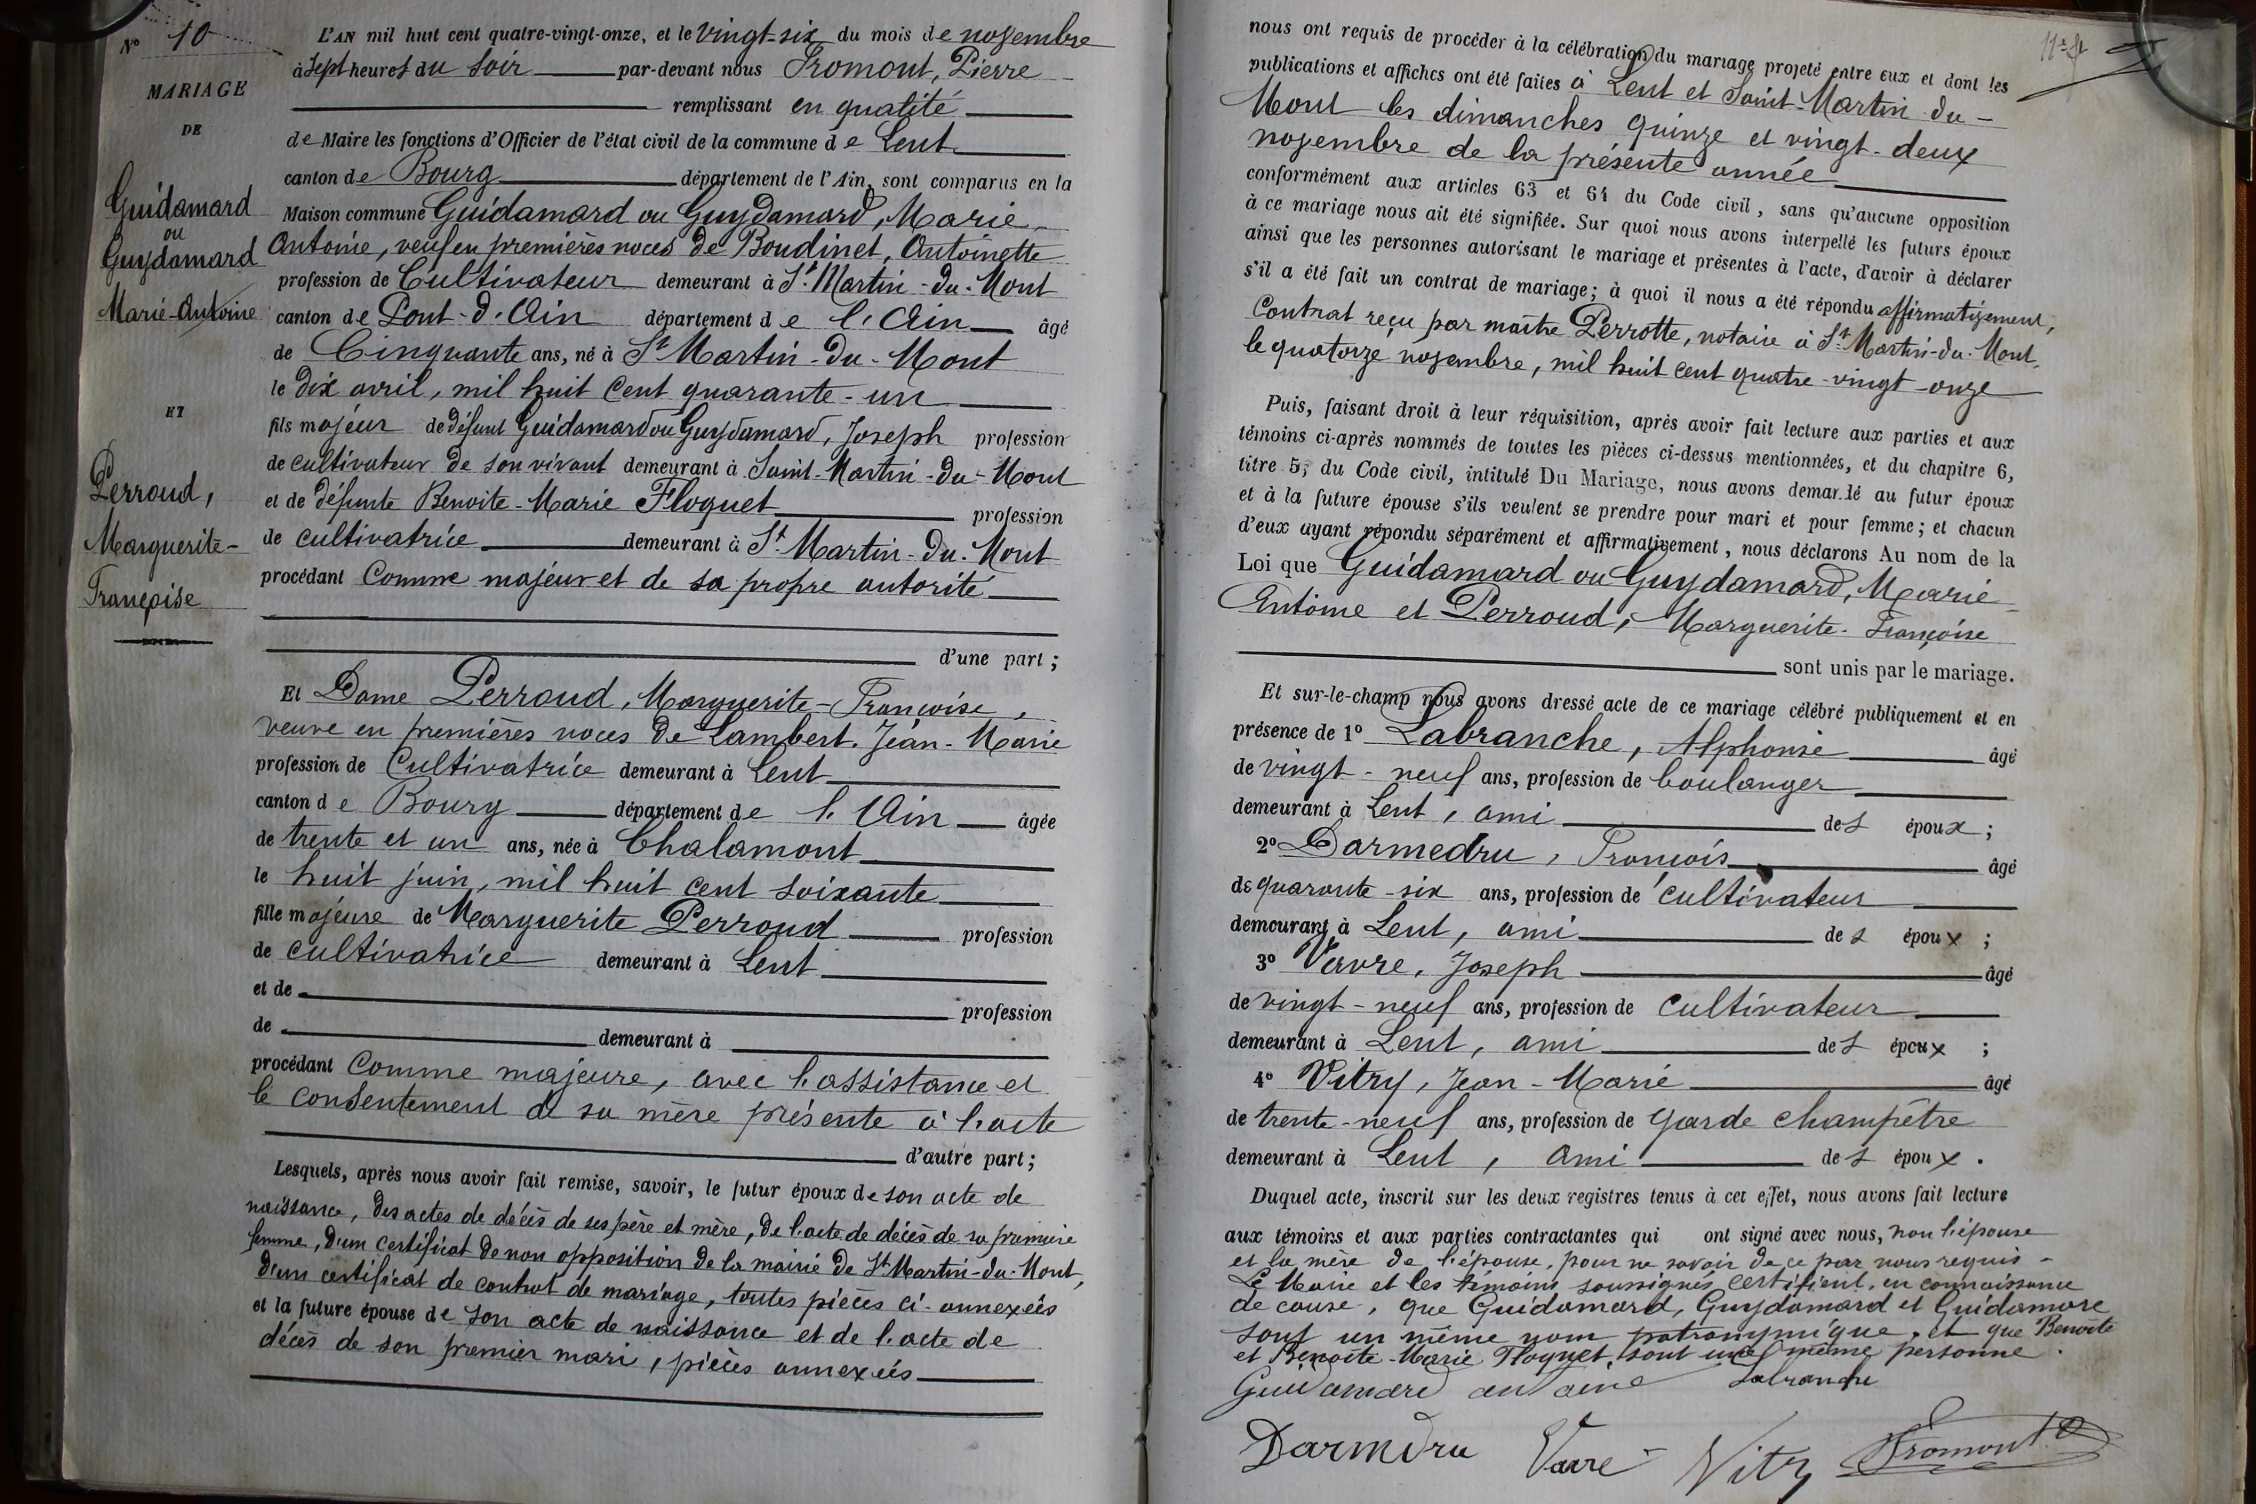 N° 10
MARIAGE
DE
Guidamard
ou
Guydamard
Marie-Antoine
ET
Perroud,
Marguerite-
Françoise
L'AN mil huit cent quatre-vingt-onze, et le vingt-six du mois de novembre
à sept heures du soir par-devant nous Fromont, Pierre
remplissant en qualité
de Maire les fonctions d'Officier de l'état civil de la commune de Lent
canton de Bourg département de l'Ain, sont comparus en la
Maison commune Guidamard ou Guydamard, Marie
Antoine, veuf en premières noces de Boudinet, Antoinette
profession de Cultivateur demeurant à St Martin-du-Mont
canton de Pont-d'Ain département de l'Ain âgé
de Cinquante ans, né à St Martin-du-Mont
le dix avril, mil huit cent quarante-un
fils majeur de défunt Guidamard ou Guydamard, Joseph profession
de cultivateur de son vivant demeurant à Saint-Martin-du-Mont
et de défunte Benoite-Marie Floquet profession
de cultivatrice demeurant à St Martin-du-Mont
procédant comme majeur et de sa propre autorité
d'une part ;
Et Dame Perroud, Marguerite-Françoise,
veuve en premières noces de Lambert, Jean-Marie
profession de Cultivatrice demeurant à Lent
canton de Bourg département de l'Ain âgée
de trente et un ans, née à Chalamont
le huit juin, mil huit cent soixante
fille majeure de Marguerite Perroud profession
de cultivatrice demeurant à Lent
et de profession
de demeurant à
procédant comme majeure, avec l'assistance et
le consentement de sa mère présente à l'acte
d'autre part ;
Lesquels, après nous avoir fait remise, savoir, le futur époux de son acte de
naissance, des actes de décès de ses père et mère, de l'acte de décès de sa première
femme, d'un certificat de non opposition de la mairie de St Martin-du-Mont,
d'un certificat de contrat de mariage, toutes pièces ci-annexées
et la future épouse de son acte de naissance et de l'acte de
décès de son premier mari, pièces annexées
nous ont requis de procéder à la célébration du mariage projeté entre eux et dont les
publications et affiches ont été faites à Lent et Saint-Martin-du-
Mont les dimanches quinze et vingt-deux
novembre de la présente année
conformément aux articles 63 et 64 du Code civil, sans qu'aucune opposition
à ce mariage nous ait été signifiée. Sur quoi nous avons interpellé les futurs époux
ainsi que les personnes autorisant le mariage et présentes à l'acte, d'avoir à déclarer
s'il a été fait un contrat de mariage ; à quoi il nous a été répondu affirmativement,
Contrat reçu par maître Perrotte, notaire à St Martin-du-Mont,
le quatorze novembre, mil huit cent quatre-vingt-onze
Puis, faisant droit à leur réquisition, après avoir fait lecture aux parties et aux
témoins ci-après nommés de toutes les pièces ci-dessus mentionnées, et du chapitre 6,
titre 5, du Code civil, intitulé Du Mariage, nous avons demandé au futur époux
et à la future épouse s'ils veulent se prendre pour mari et pour femme ; et chacun
d'eux ayant répondu séparément et affirmativement, nous déclarons Au nom de la
Loi que Guidamard ou Guydamard, Marie
Antoine et Perroud, Marguerite-Françoise
sont unis par le mariage.
Et sur-le-champ nous avons dressé acte de ce mariage célébré publiquement et en
présence de 1° Labranche, Alphonse âgé
de vingt-neuf ans, profession de boulanger
demeurant à Lent, ami des époux ;
2° Darmedru, François âgé
de quarante-six ans, profession de cultivateur
demeurant à Lent, ami des époux ;
3° Vavre, Joseph âgé
de vingt-neuf ans, profession de cultivateur
demeurant à Lent, ami des époux ;
4° Vitry, Jean-Marie âgé
de trente-neuf ans, profession de garde champêtre
demeurant à Lent, ami des époux.
Duquel acte, inscrit sur les deux registres tenus à cet effet, nous avons fait lecture
aux témoins et aux parties contractantes qui ont signé avec nous, non l'épouse
et la mère de l'épouse, pour ne savoir de ce par nous requis -
Le Maire et les témoins soussignés certifient, en connaissance
de cause, que Guidamard, Guydamard et Guidamare
sont un même nom patronymique, et que Benoite
et Benoite-Marie Floquet, sont une même personne.
Guidamard antoine Labranche
Darmdru Vavre Vitry Fromont